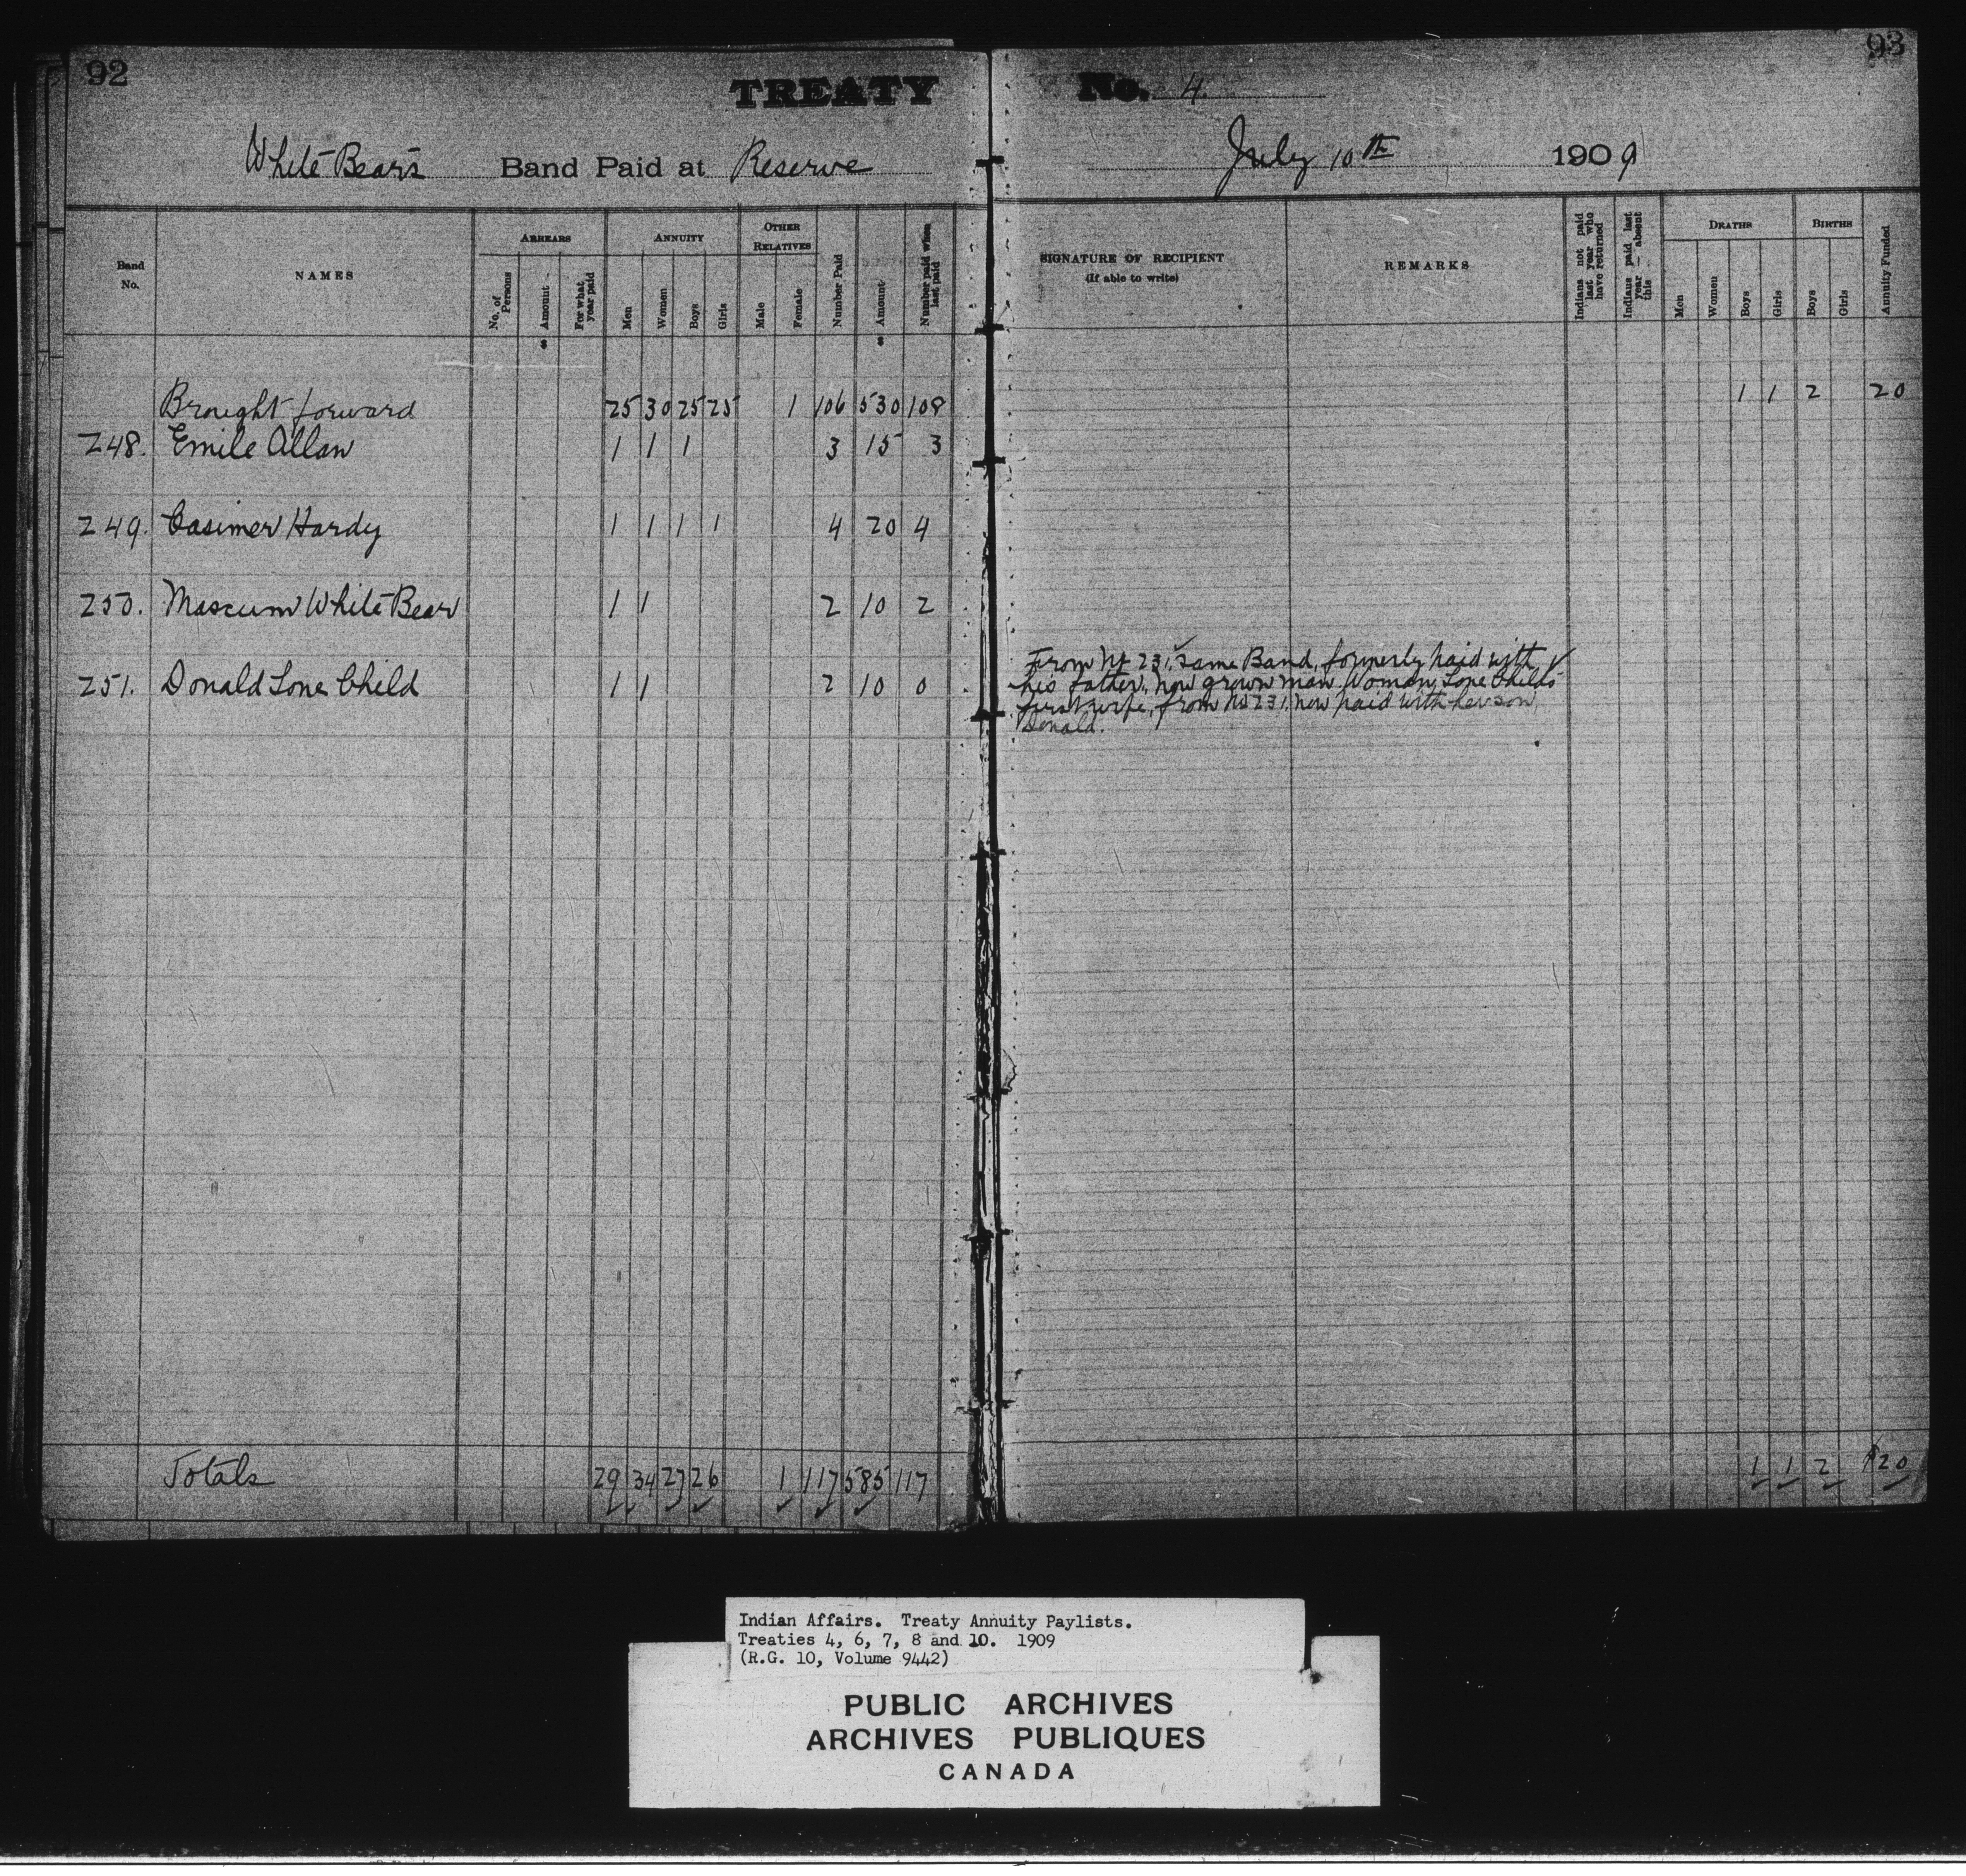 92
93
TREATY No. 4.
White Bear's Band Paid at Reserve July 10th 1909
Band No.
NAMES
ARREARS
No. of Persons
Amount
For what year paid
ANNUITY
Men
Women
Boys
Girls
OTHER RELATIVES
Male
Female
Number Paid
Amount
Number paid when last paid
SIGNATURE OF RECIPIENT
(If able to write)
REMARKS
Indians not paid last year who have returned
Indians paid last year — absent this
DEATHS
Men
Women
Boys
Girls
BIRTHS
Boys
Girls
Annuity Funded
$ $
Brought forward 25 30 25 25 1 106 530 108 1 1 2 20
248. Emile Allan 1 1 1 3 15 3
249. Casimer Hardy 1 1 1 1 4 20 4
250. Mascum White Bear 1 1 2 10 2
251. Donald Lone Child 1 1 2 10 0
From No 231, Same Band, formerly paid with
his father, now grown man. Woman, Lone Child's
first wife, from No 231, now paid with her son,
Donald.
Totals 29 34 27 26 1 117 585 117 1 1 2 $20
Indian Affairs. Treaty Annuity Paylists.
Treaties 4, 6, 7, 8 and 10. 1909
(R.G. 10, Volume 9442)
PUBLIC ARCHIVES
ARCHIVES PUBLIQUES
CANADA